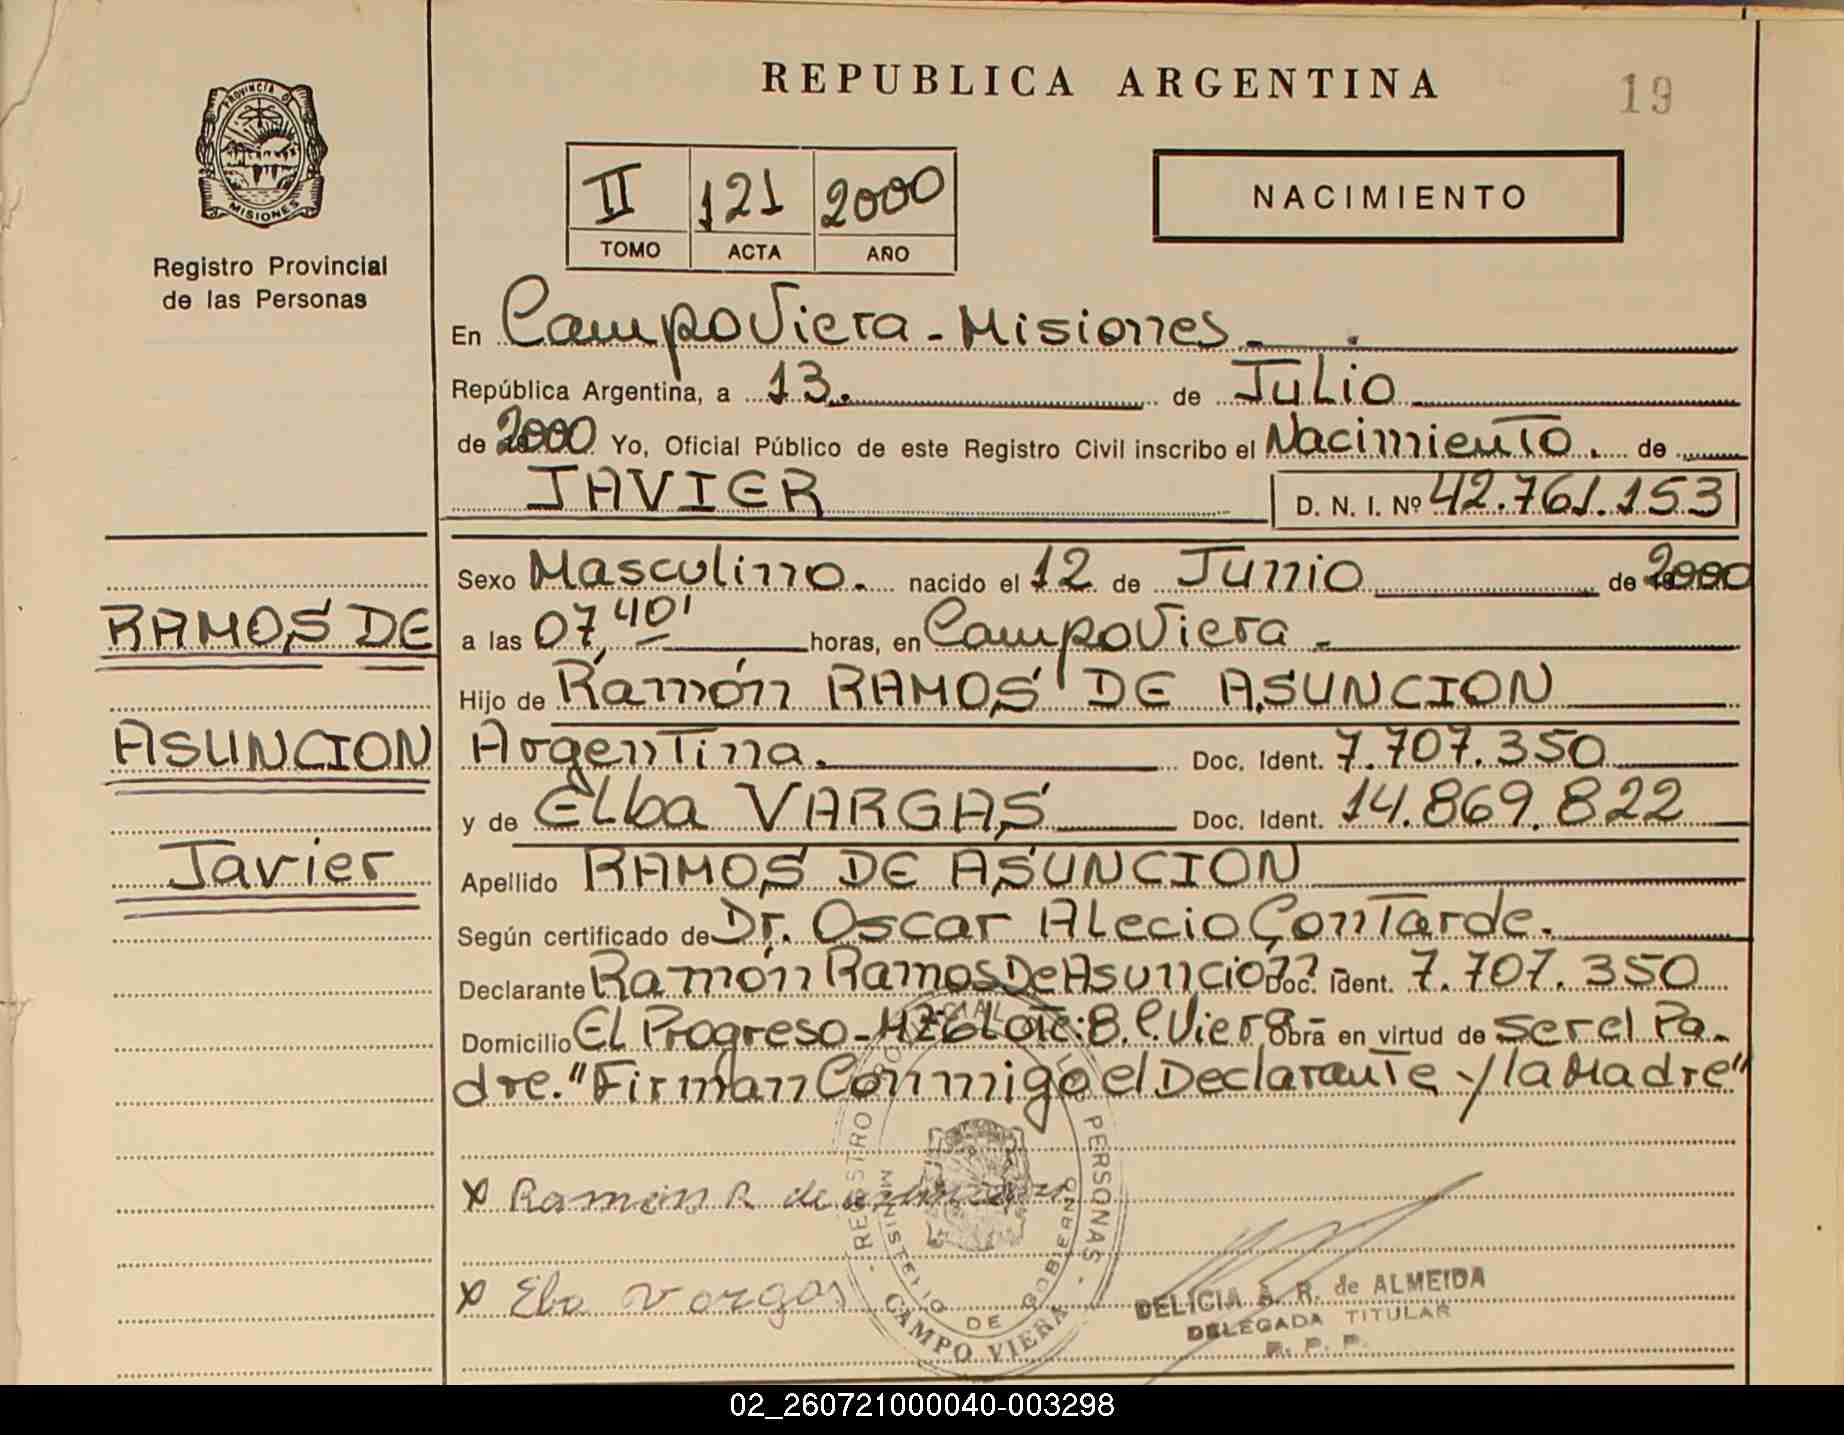 REPUBLICA ARGENTINA
19
PROVINCIA D
MISIONES
Registro Provincial
de las Personas
II 121 2000
TOMO ACTA AÑO
NACIMIENTO
En Campo Viera - Misiones.
República Argentina, a 13. de Julio
de 2000 Yo, Oficial Público de este Registro Civil inscribo el Nacimiento. de
JAVIER D. N. I. Nº 42.761.153
Sexo Masculino. nacido el 12 de Junio de 2000
RAMOS DE
a las 07,40' horas, en Campo Viera.
Hijo de Ramón RAMOS DE ASUNCION
ASUNCION
Argentina. Doc. Ident. 7.707.350
y de Elba VARGAS Doc. Ident. 14.869.822
Javier
Apellido RAMOS DE ASUNCION
Según certificado de Dr. Oscar Alecio Contarde.
Declarante Ramón Ramos De Asunción Doc. Ident. 7.707.350
Domicilio El Progreso - MZ6 Lote: 8. C. Viera Obra en virtud de ser el Pa-
dre. "Firman Conmigo el Declarante y la Madre"
x Ramón R de asuncion
x Elba Vargas
REGISTRO PERSONAS
MINISTERIO DE GOBIERNO
CAMPO VIERA
DELICIA A. R. de ALMEIDA
DELEGADA TITULAR
R. P. P.
02_260721000040-003298